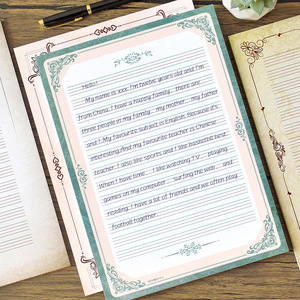 Hello!
My name is xxx. I'm twelve years old and I'm
from China. I have a happy family, there are
three people in my family, my mother, my father
and I. My favourite subject is English. Because it's
interesting. And my favourite teacher is Chinese
teacher. I also like sports and I like basketball best.
When I have time, I like watching TV, playing
games on my computer, surfing the web, and
reading. I have a lot of friends and we often play
football together.